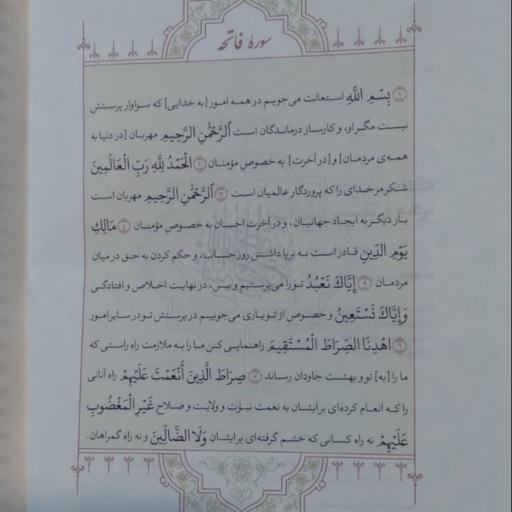 سورهٔ فاتحه
۱ بِسْمِ اللَّهِ استعانت می‌جویم در همه امور [به خدایی] که سزاوار پرستش
نیست مگر او، و کارساز درماندگان است اَلرَّحْمٰنِ الرَّحِیمِ مهربان [در دنیا به
همه‌ی مردمان] و [در آخرت] به خصوص مؤمنان ۲ اَلْحَمْدُ لِلَّهِ رَبِّ الْعَالَمِینَ
شکر مر خدای را که پروردگار عالمیان است ۳ اَلرَّحْمٰنِ الرَّحِیمِ مهربان است
بار دیگر به ایجاد جهانیان، و در آخرت احسان به خصوص مؤمنان ۴ مَالِكِ
یَوْمِ الدِّینِ قادر است به برپا داشتن روز حساب، و حکم کردن به حق در میان
مردمان ۵ إِیَّاكَ نَعْبُدُ تو را می‌پرستیم و بس، در نهایت اخلاص و افتادگی
وَإِیَّاكَ نَسْتَعِینُ و خصوص از تو یاری می‌جوییم در پرستش تو در سایر امور
۶ اهْدِنَا الصِّرَاطَ الْمُسْتَقِیمَ راهنمایی کن ما را به ملازمت راه راستی که
ما را [به] تو و بهشت جاودان رساند ۷ صِرَاطَ الَّذِینَ أَنْعَمْتَ عَلَیْهِمْ راه آنانی
را که انعام کرده‌ای بر ایشان به نعمت نبوّت و ولایت و صلاح غَیْرِ الْمَغْضُوبِ
عَلَیْهِمْ نه راه کسانی که خشم گرفته‌ای بر ایشان وَلَا الضَّالِّینَ و نه راه گمراهان.